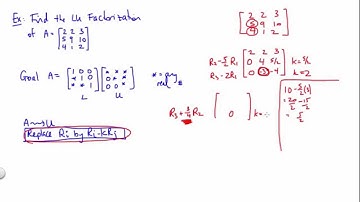 Ex: Find the LU Factorization
of A = [2 2 3
5 9 10
4 1 2]
Goal A = [1 0 0
* 1 0
* * 1] [* * *
0 * *
0 0 *]
L U
* = any
real #
A → U
Replace Ri by Ri - kRj
[2 2 3
5 9 10
4 1 2]
R2 - 5/2 R1
R3 - 2R1
[2 2 3
0 4 5/2
0 -3 -4]
k = 5/2
k = 2
R3 + 3/4 R2 [
0 ] k =
10 - 5/2(3)
= 20/2 - 15/2
= 5/2